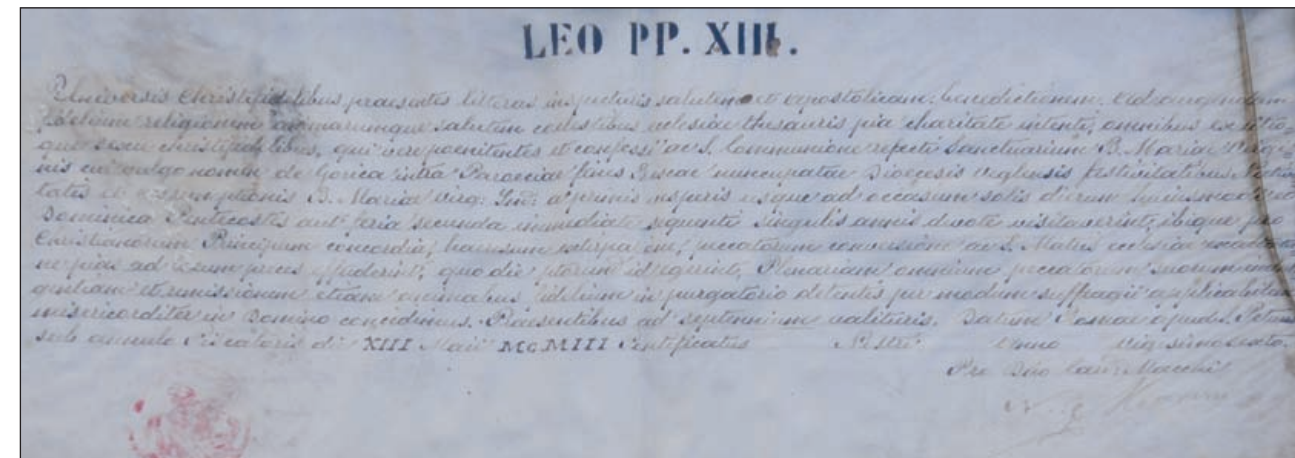 LEO PP. XIII.
Universis Christifidelibus praesentes litteras inspecturis salutem et apostolicam benedictionem. Ad augendam
fidelium religionem animarumque salutem coelestibus ecclesiae thesauris pia charitate intenti, omnibus
christifidelibus, qui vere poenitentes et confessi ac S. Communione refecti Sanctuarium B. Mariae Virgi-
nis cui vulgo nomen de Gorica intra Paroeciae fines nuncupatae Dioecesis Veglensis festivitatibus Nativi-
tatis et assumptionis B. Mariae Virg: Im: a primis vesperis usque ad occasum solis dierum huiusmodi
Dominica Pentecostis aut feria secunda immediate sequente singulis annis devote visitaverint, ibique pro
Christianorum Principum concordia, haeresum peccatorum conversione ac S. Matris ecclesiae
ne pias ad preces effuderint, quo die id egerint, Plenariam omnium peccatorum suorum indul-
gentiam et remissionem etiam animabus fidelium in purgatorio detentis per modum suffragii applicabilem
misericorditer in Domino concedimus. Praesentibus ad septennium valituris. Datum Romae apud S. Petrum
sub annulo Piscatoris die XIII Maii MCMIII Pontificatus Nostri anno vigesimosexto.
Pro Dno Card: Macchi